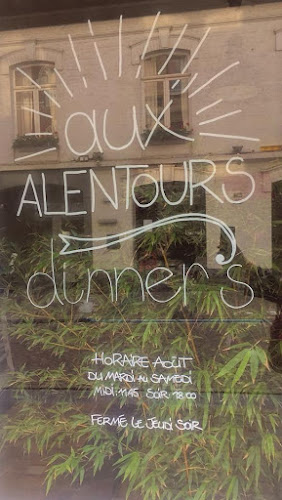 aux
ALENTOURS
dinner's
HORAIRE AOÛT
DU MARDI AU SAMEDI
MIDI: 11:45 SOIR: 18:00
FERMÉ LE JEUDI SOIR